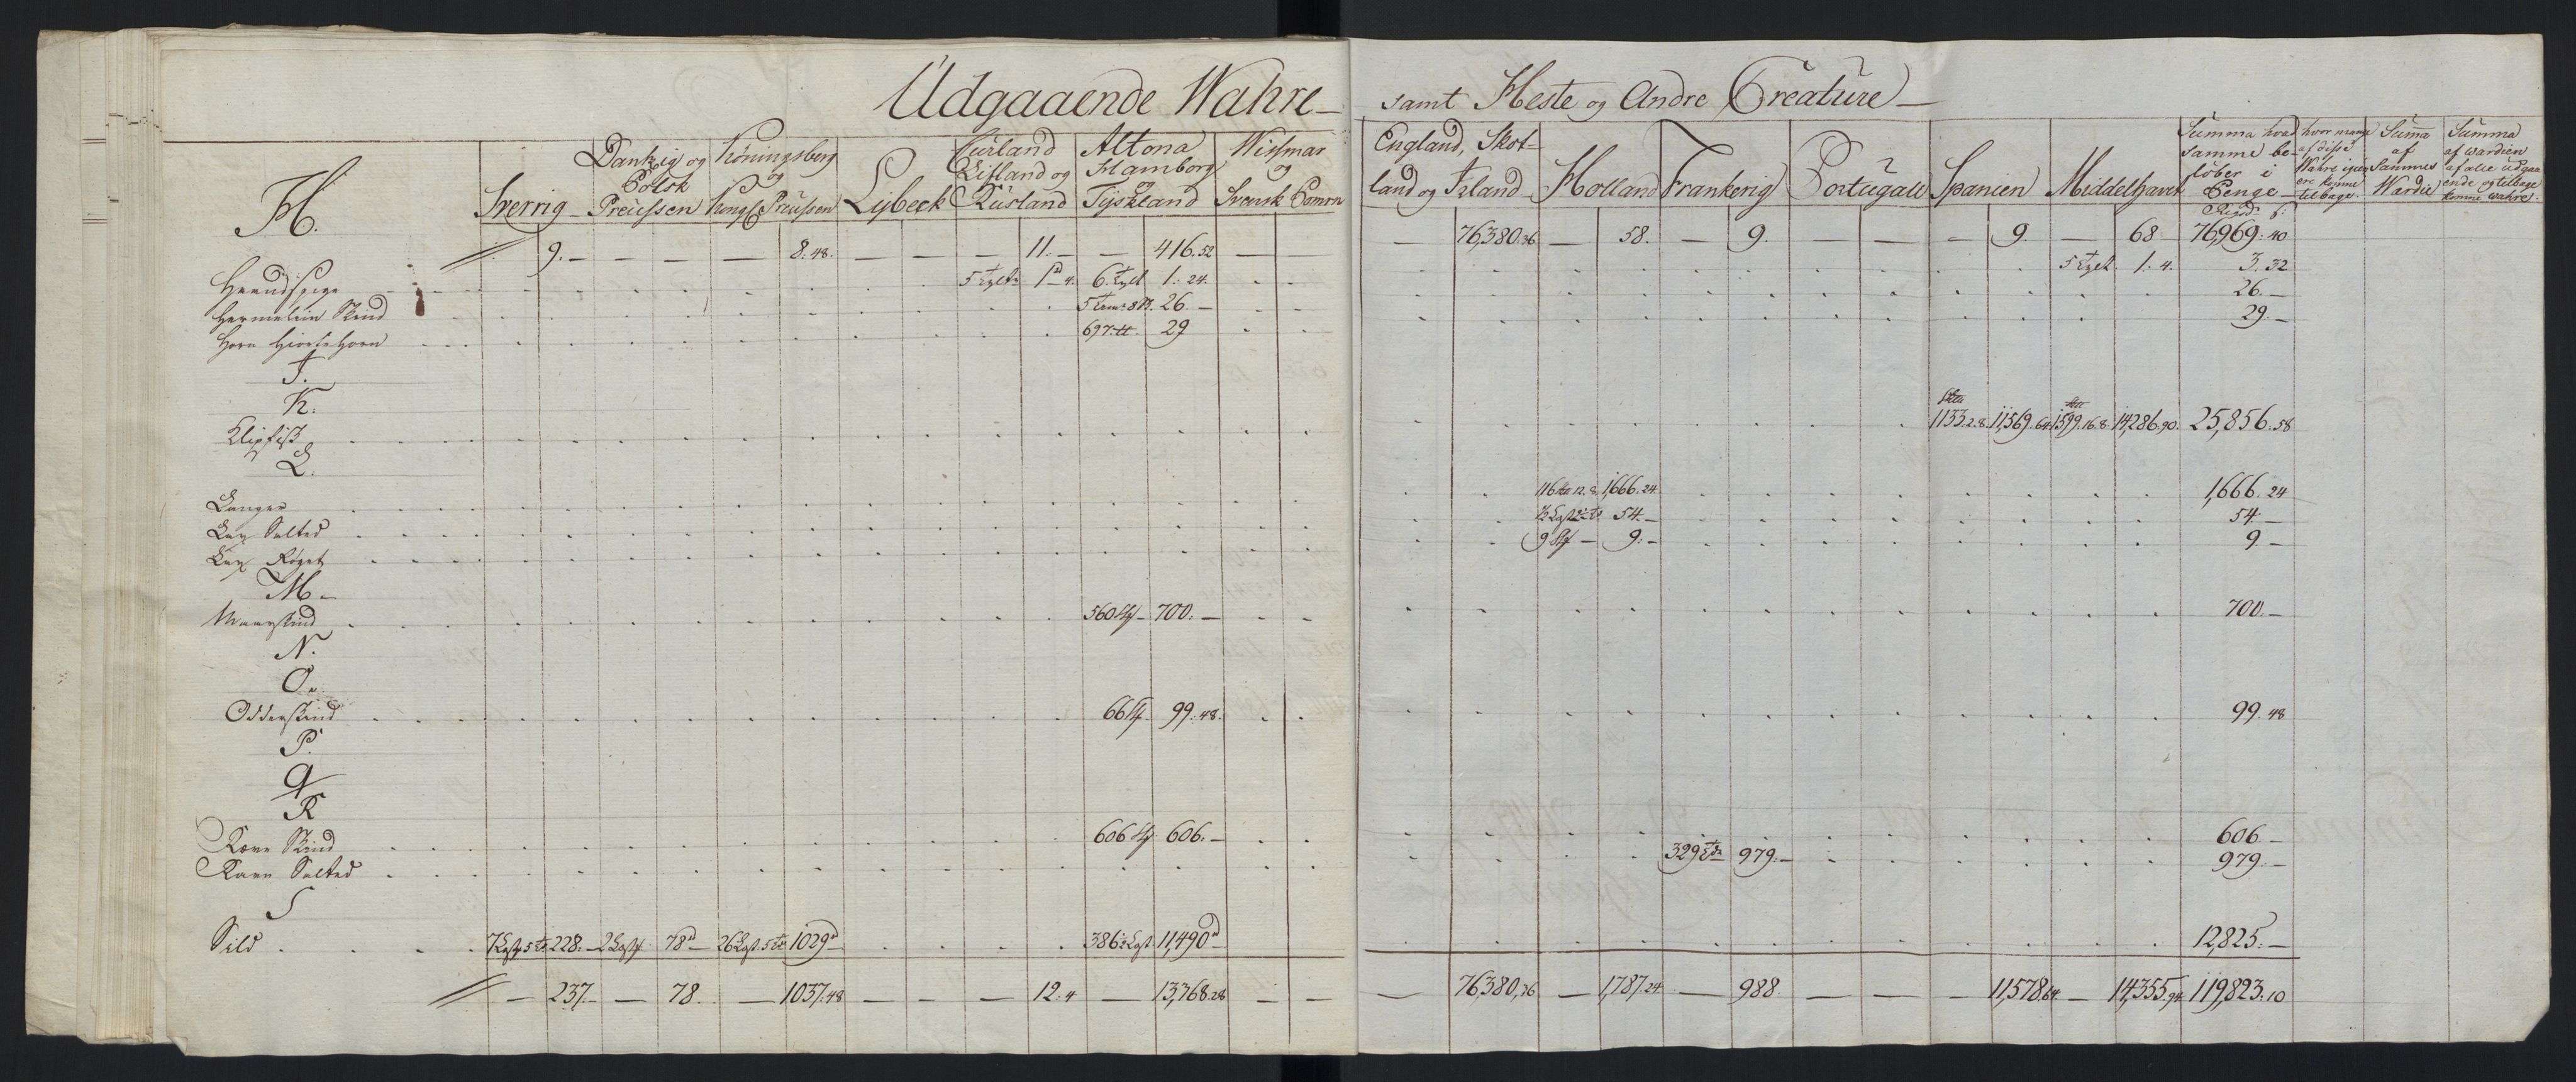 Udgaaende Wahre samt Heste og Andre Creature
H.
Sverrig
Dantzig og Polsk Preussen
Köningsberg og Kongl Preussen
Lybeck
Curland Lifland og Rusland
Altona Hamborg og Tyskland
Wissmar og Svensk Pomrn
England, Skotland og Irland
Holland
Frankerig
Portugall
Spanien
Middelhavet
Summa hvad samme beløber i Penge
hvor mange af disse Wahre igien ere komne tilbage
Summa af Sammes Wardie
Summa af wardien af alle udgaaende og tilbage komne wahre
Rigsd. s:
9. — — — — 8. 48. — — — 11. — — 416. 52 — — — 76,380. 36 — 58. — 9. — — — 9. — 68 76,969. 40
1 4. 6. 1. 24. 1. 4. 3. 32
Hermelin Skind 26. — 26. —
Horn Hiortehorn 697. 29 29. —
I.
K.
Klipfisk 1133. 2. 8. 11,569. 64 1399. 16. 8. 14,286. 90. 25,856. 58
L.
Langer 116 12. 8. 1,666. 24 1,666. 24
Lax Salted 54. — 54 —
Lax Røget 9 9. — 9. —
M.
Maarskind 560 700. — 700. —
N.
O.
Odderskind 66 99. 48. 99. 48
P.
Q
R
Ræve Skind 606 606. — 606 —
Ravn Salted 329 979. — 979. —
S
Sild 228. — 2 78 — 26 1029 — 386 11,490 12,825. —
— 237. — 78. — 1037. 48 — — — 12. 4 — 13,368. 28 — — — 76,380. 36 — 1,787. 24 — 988 — — — 11,578. 64 — 14,355. 94 119,823. 10